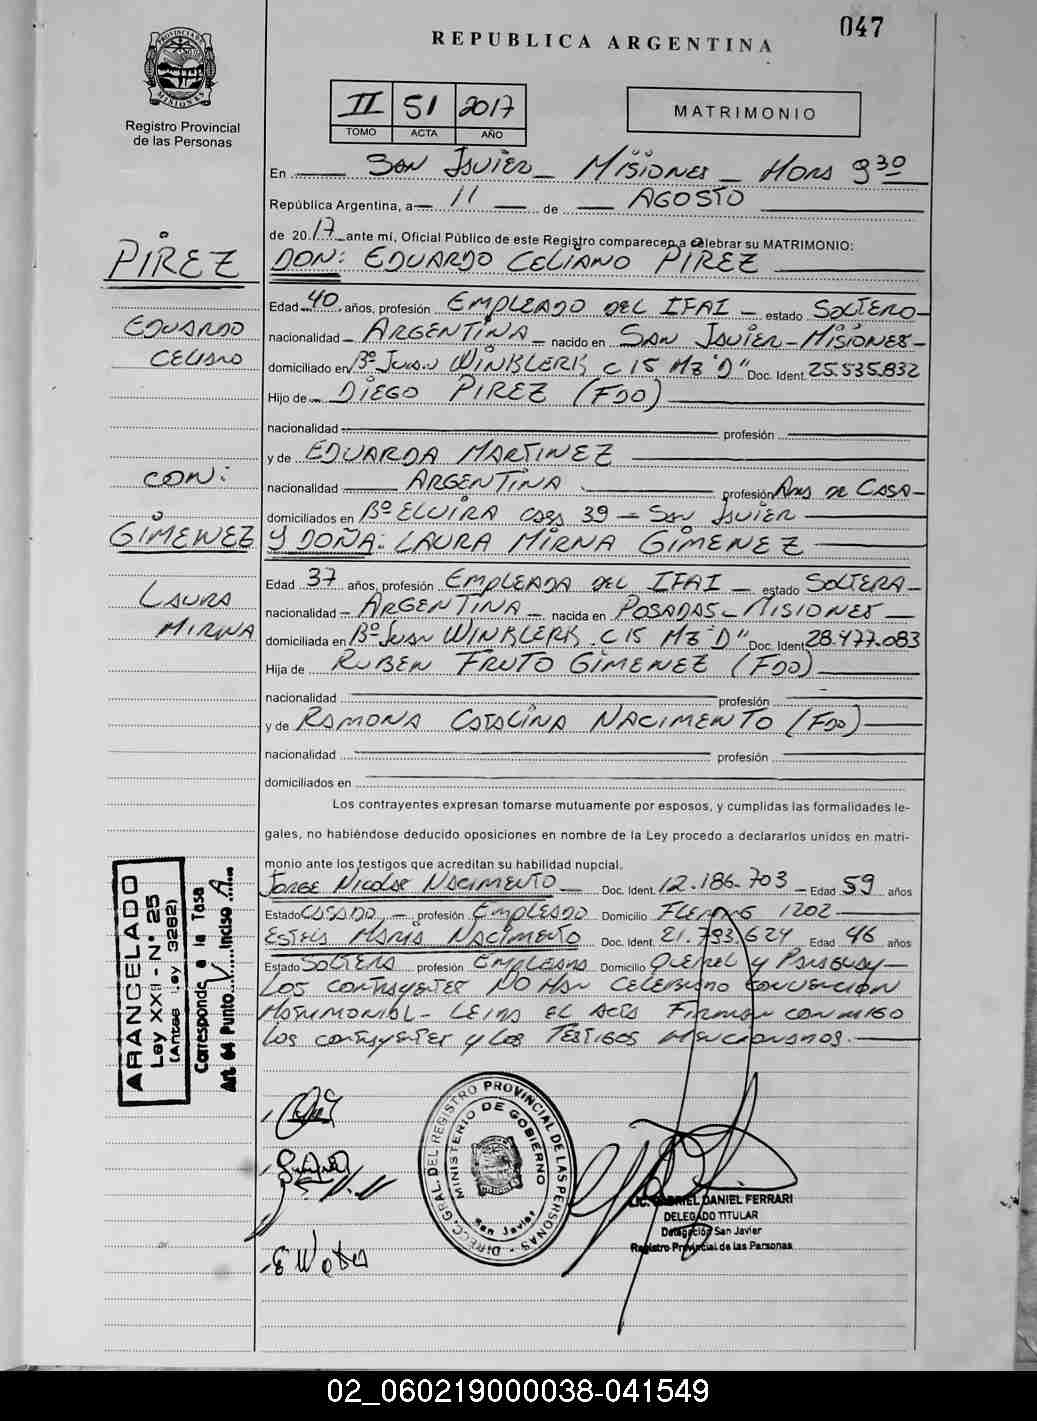 047
REPUBLICA ARGENTINA
PROVINCIA DE MISIONES
Registro Provincial
de las Personas
II 51 2017
TOMO ACTA AÑO
MATRIMONIO
En San Javier - Misiones - Hora 9 30
República Argentina, a 11 de AGOSTO
de 2017 ante mí, Oficial Público de este Registro comparecen a celebrar su MATRIMONIO:
PIREZ
DON: EDUARDO CELIANO PIREZ
Edad 40 años, profesión EMPLEADO DEL IFAI - estado SOLTERO
EDUARDO
nacionalidad - ARGENTINA - nacido en SAN JAVIER - MISIONES -
CELIANO
domiciliado en Bº JUAN WINKLERK C 15 MZ "D" Doc. Ident. 25.535.832
Hijo de DIEGO PIREZ (FDO)
nacionalidad profesión
y de EDUARDA MARTINEZ
CON:
nacionalidad ARGENTINA profesión Ama DE CASA -
domiciliados en Bº ELVIRA casa 39 - SAN JAVIER
GIMENEZ
Y DOÑA: LAURA MIRNA GIMENEZ
Edad 37 años, profesión EMPLEADA DEL IFAI - estado SOLTERA -
LAURA
nacionalidad - ARGENTINA - nacida en POSADAS - MISIONES
MIRNA
domiciliada en Bº JUAN WINKLERK C 15 MZ "D" Doc. Ident. 28.477.083
Hija de RUBEN FRUTO GIMENEZ (FDO)
nacionalidad profesión
y de RAMONA CATALINA NACIMENTO (FDO)
nacionalidad profesión
domiciliados en
Los contrayentes expresan tomarse mutuamente por esposos, y cumplidas las formalidades le-
gales, no habiéndose deducido oposiciones en nombre de la Ley procedo a declararlos unidos en matri-
monio ante los testigos que acreditan su habilidad nupcial.
JORGE NICOLAS NACIMENTO - Doc. Ident. 12.186.703 - Edad 59 años
Estado CASADO - profesión EMPLEADO Domicilio FLEMING 1202
MARIA NACIMENTO Doc. Ident. 21.793.624 Edad 46 años
Estado SOLTERA profesión EMPLEADA Domicilio y PARAGUAY -
LOS CONTRAYENTES NO HAN CELEBRADO CONVENCION
MATRIMONIAL - LEIDA EL ACTA FIRMAN CONMIGO
LOS CONTRAYENTES Y LOS TESTIGOS MENCIONADOS.
ARANCELADO
Ley XXII - N° 25
(Antes Ley 3262)
Corresponde a la Tasa
Art. 64 Punto V Inciso A
DIRECC. GRAL. DEL REGISTRO PROVINCIAL DE LAS PERSONAS
MINISTERIO DE GOBIERNO
San Javier
LIC. GABRIEL DANIEL FERRARI
DELEGADO TITULAR
Delegación San Javier
Registro Provincial de las Personas
02_060219000038-041549